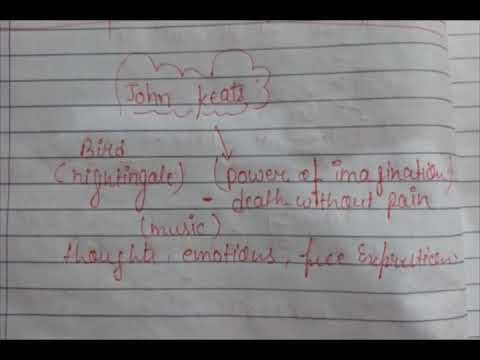 John Keats
Bird
(nightingale) (power of imagination)
- death without pain
(music)
thoughts, emotions, free Expression